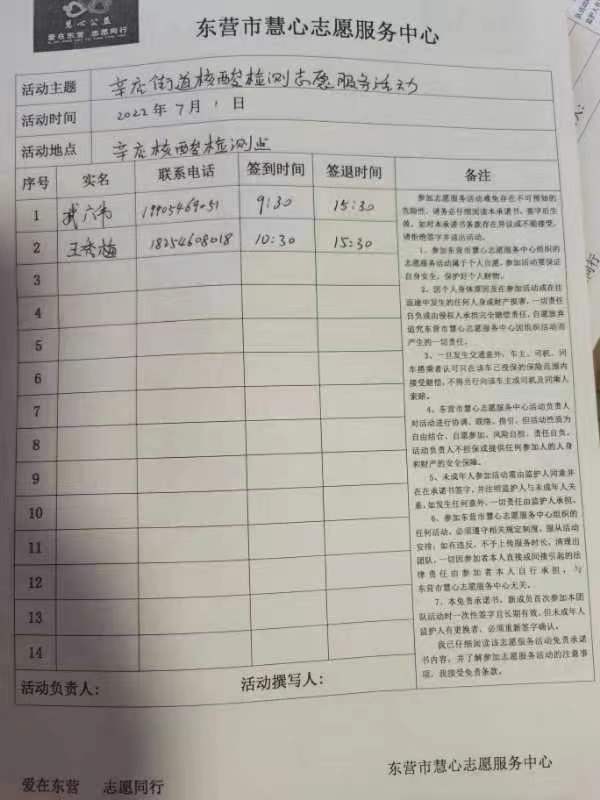 慧心公益
爱在东营 志愿同行
东营市慧心志愿服务中心
活动主题 辛店街道核酸检测志愿服务活动
活动时间 2022年7月1日
活动地点 辛店核酸检测点
序号 实名 联系电话 签到时间 签退时间 备注
1 武 19905469051 9:30 15:30
2 王秀梅 18254608018 10:30 15:30
3
4
5
6
7
8
9
10
11
12
13
14
参加志愿服务活动难免存在不可预知的
危险性，请务必仔细阅读本承诺书，签字后生
效。如对本承诺书条款存在异议或不能接受，
请拒绝签字并退出活动。
1、参加东营市慧心志愿服务中心组织的
志愿服务活动属于个人自愿，参加活动要保证
自身安全，保护好个人财物。
2、因个人身体原因及在参加活动或在往
返途中发生的任何人身或财产损害，一切责任
自负或由侵权人承担完全赔偿责任，自愿放弃
追究东营市慧心志愿服务中心因组织活动而
产生的一切责任。
3、一旦发生交通意外，车主、司机、同
车搭乘者认可只在该车已投保的保险范围内
接受赔偿，不得另行向该车主或司机及同乘人
索赔。
4、东营市慧心志愿服务中心活动负责人
对活动进行协调、联络、指引，但活动性质为
自由结合、自愿参加、风险自担、责任自负。
活动负责人不担保或提供任何参加人的人身
和财产的安全保障。
5、未成年人参加活动需由监护人同意并
在在承诺书签字，并注明监护人与未成年人关
系，如发生任何意外，一切责任由监护人承担。
6、参加东营市慧心志愿服务中心组织的
任何活动，必须遵守相关规定制度，服从活动
安排；如有违反，不予上传服务时长，清理出
团队。一切因参加者本人直接或间接引起的法
律责任由参加者本人自行承担，与
东营市慧心志愿服务中心无关。
7、本免责承诺书，新成员首次参加本团
队活动时一次性签字且长期有效，但未成年人
监护人有更换者，必须重新签字确认。
我已仔细阅读该志愿服务活动免责承诺
书内容，并了解参加志愿服务活动的注意事
项，我接受免责条款。
活动负责人： 活动撰写人：
东营市慧心志愿服务中心
爱在东营 志愿同行